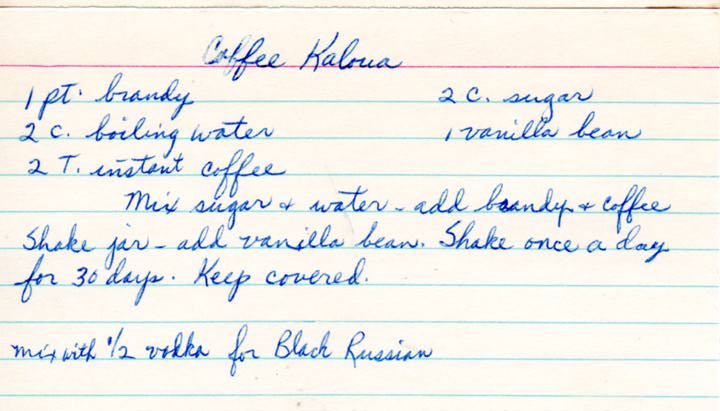 Coffee Kaloua
1 pt. brandy 2 C. sugar
2 c. boiling water 1 vanilla bean
2 T. instant coffee
Mix sugar & water - add brandy & coffee
Shake jar - add vanilla bean. Shake once a day
for 30 days. Keep covered.
mix with 1/2 vodka for Black Russian